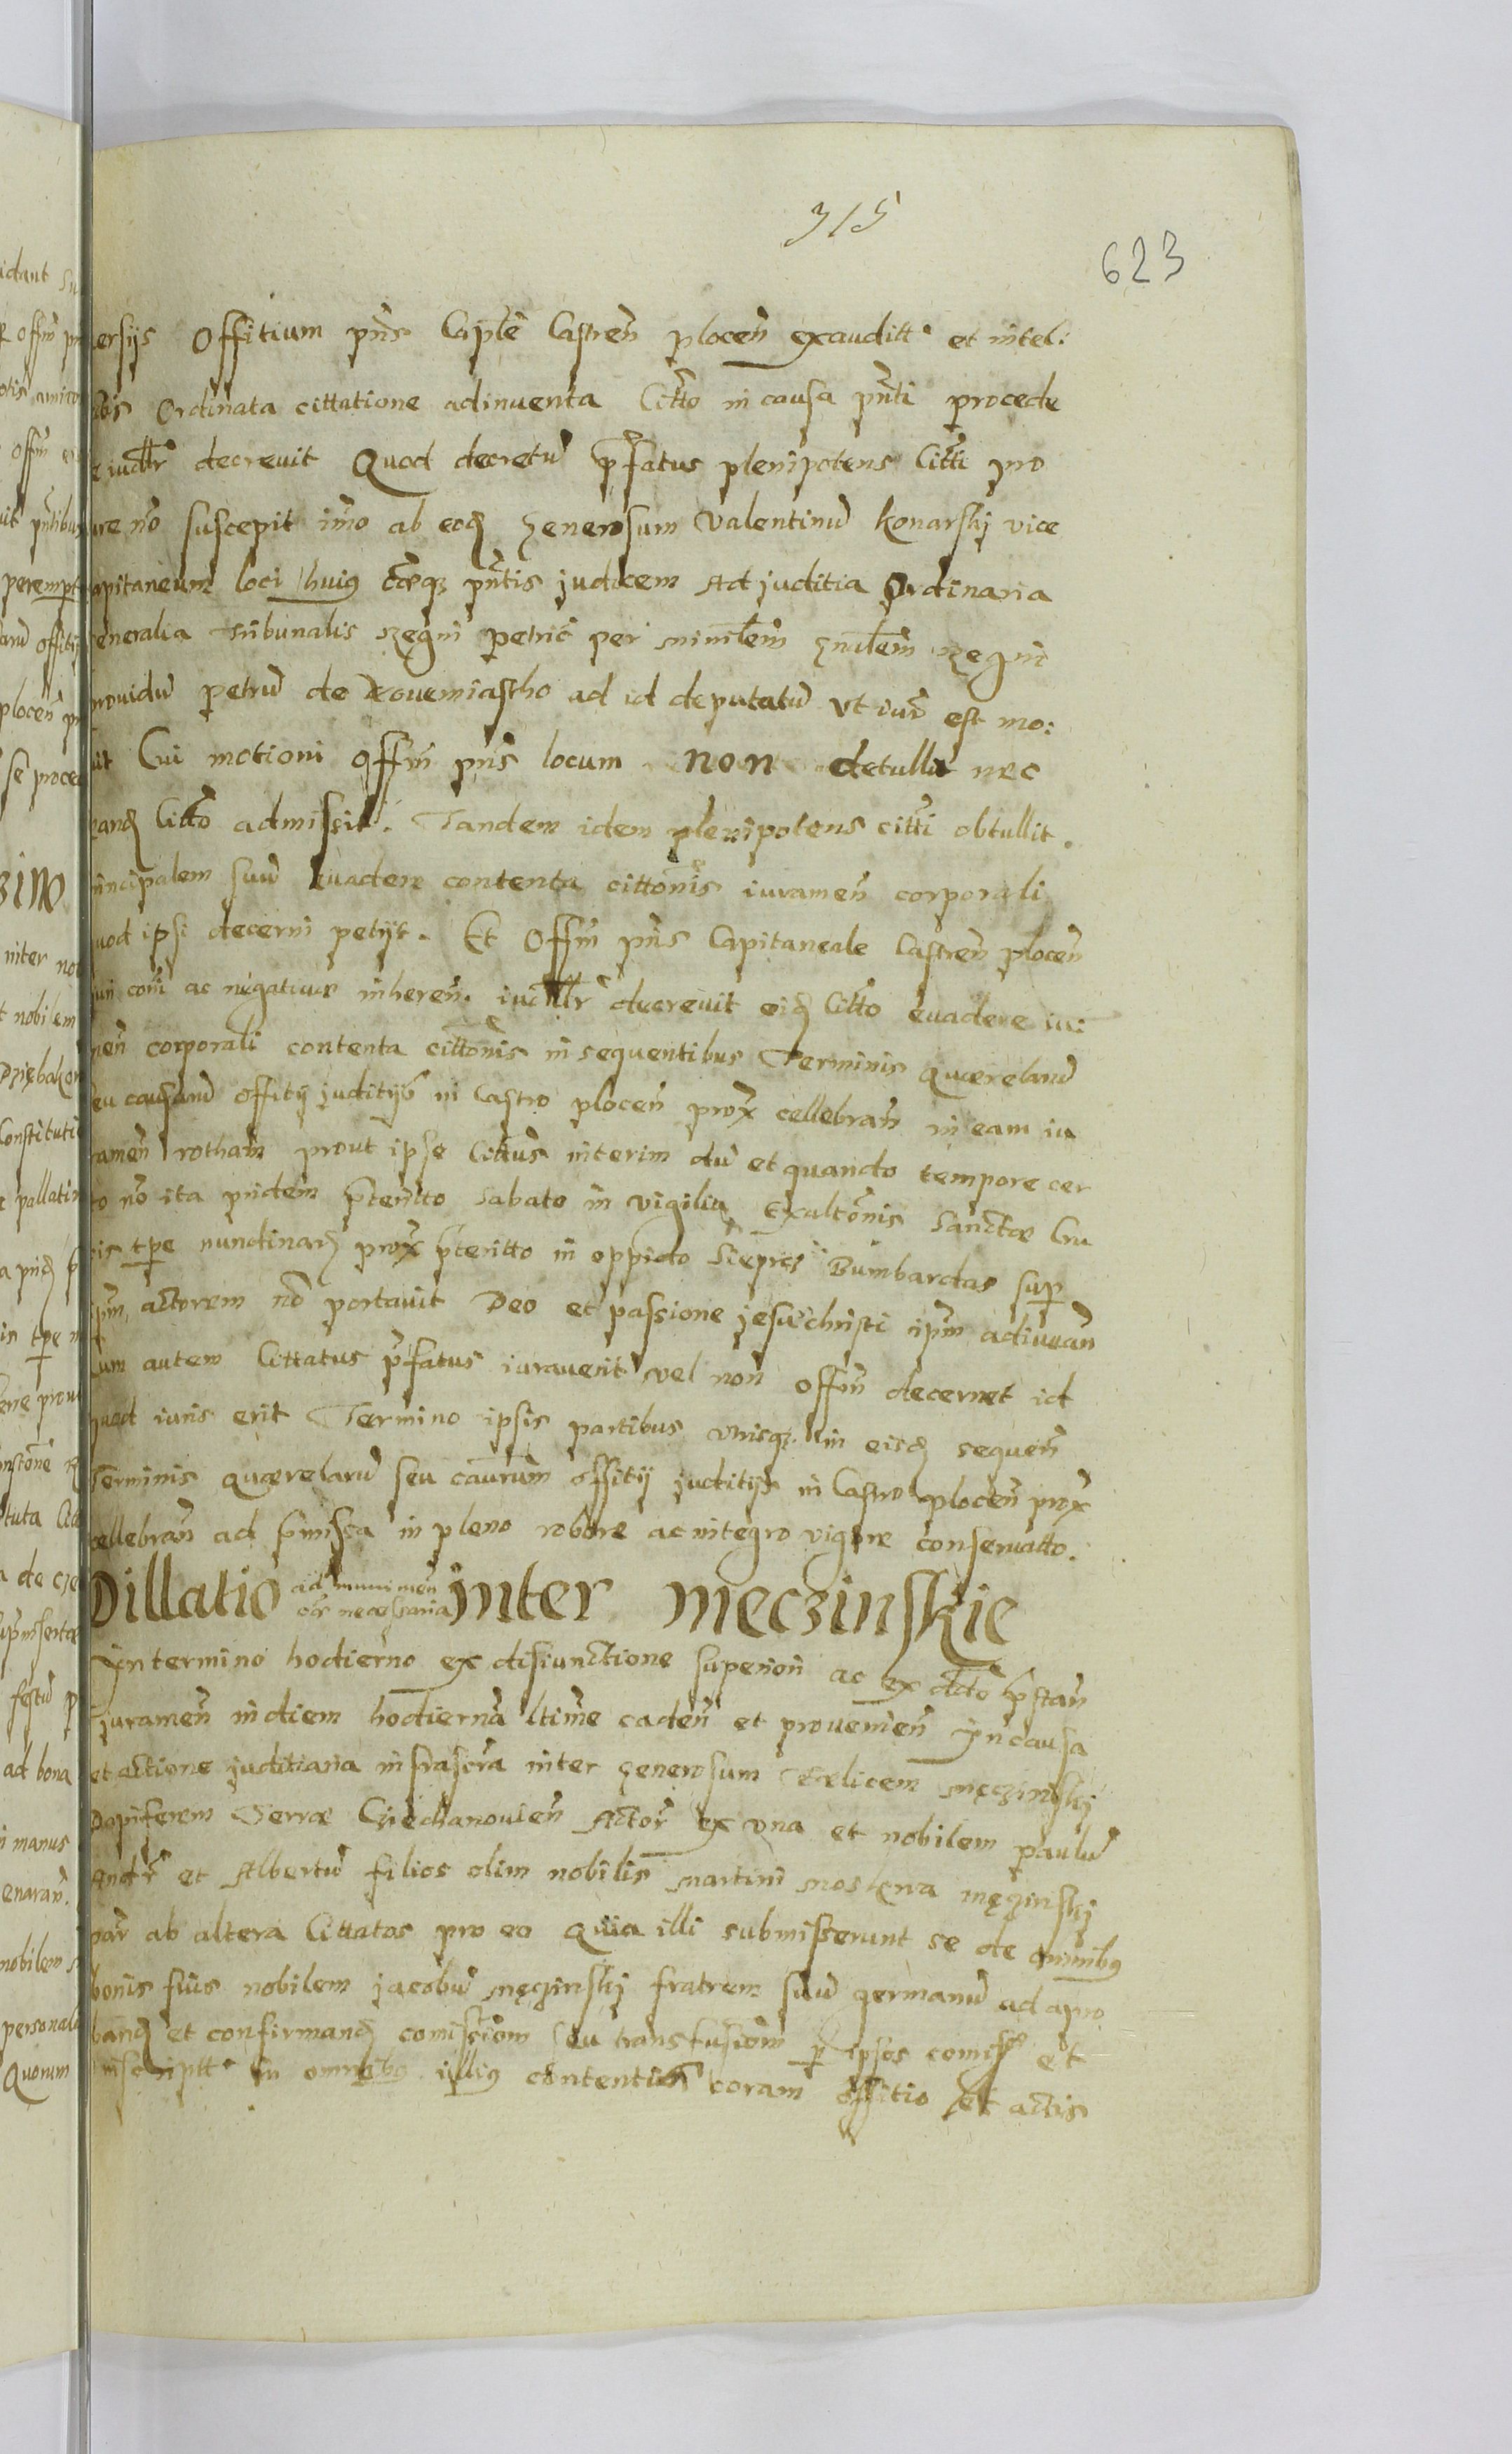 315
623
ersijs Offitium pñs Caplẽ Castreñ ploceñ exauditt° et intel:
tis Ordinata cittatione adinuenta Citto in causa pñti procede
e iudlr decreuit Quod decretũ p̃fatus plenipotens Citti pro
ure nõ suscepit imo ab eoq Generosum Valentinũ Konarskj vice
apitaneum loci huiq pñtis judicem Ad juditia Ordinaria
eneralia Tribunalis Regni petric per ministem gñalem Regni
prouidũ petrũ de Nouemiastho ad id deputatũ Vt iur est mo:
uit Cui motioni offm pñs locum non detullit nec
eand Citto admissit. Tandem idem plenipotens citti obtullit.
rincipalem suũ euadere contenta cittonis iurameñ corporali
uod ipsi decerni petijt. Et Offm pñs Capitaneale Castreñ ploceñ
iuri coni ac negatiuae inhereñ. iudllr decreuit eiq Citto euadere iu:
meñ corporali contenta cittonis in sequentibus Terminis Quaerelarũ
eu causarũ offitij juditijs in Castro ploceñ prox cellebrañ in eam iu
rameñ rotham prout ipse Cittus interim dũ et quando tempore cer
to nõ ita pridem p̃teritto Sabato in vigilia Exaltonis Sanctae Cru
cis tpe nundinarũ prox p̃teritto in oppido Sieprcz Bumbardas sup
ipm actorem nõ portauit Deo et passione jesu christi ipm adiuuañ
Cum autem Cittatus p̃fatus iurauerit vel non offm decernet id
quod iuris erit Termino ipsis partibus vtrisqz in eisd sequeñ
Terminis quaerelarũ seu causarum offitij juditijs in Castro ploceñ prox
cellebrañ ad p̃missa in pleno robore ac integro vigore conseruatto.
Dillatio ad munimeñ oĩa necessaria inter Meczinskie
In termino hodierno ex disiunctione superiori ac ex dcto p̃stañ
jurameñ in diem hodiernã ltime cadeñ et prouenieñ In causa
et actione juditiaria infrascra inter Generosum Felicem Męczinskj
Dapiferem Terrae Cziechanouieñ Actor ex vna et nobilem paulũ
Andr et Albertũ filios olim nobilis Martini Moskwa męczinskj
par ab altera Cittatos pro eo Quia illi submisserunt se de omnibq
bonis suis nobilem jacobũ Męczinskj fratrem suũ germanũ ad apro
band et confirmand comissiom seu transfusiom p ipsos comiss et
inscriptt° in omnibq illiq contentis coram offitio et actis